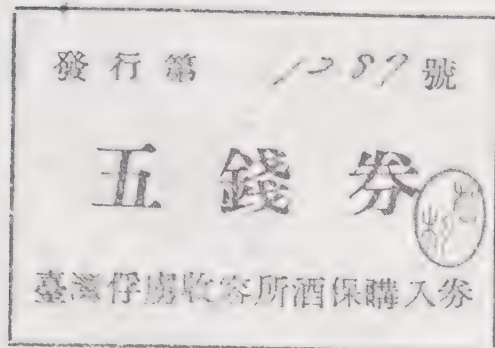 發行第 1287 號
五錢券
臺灣俘虜收容所酒保購入券